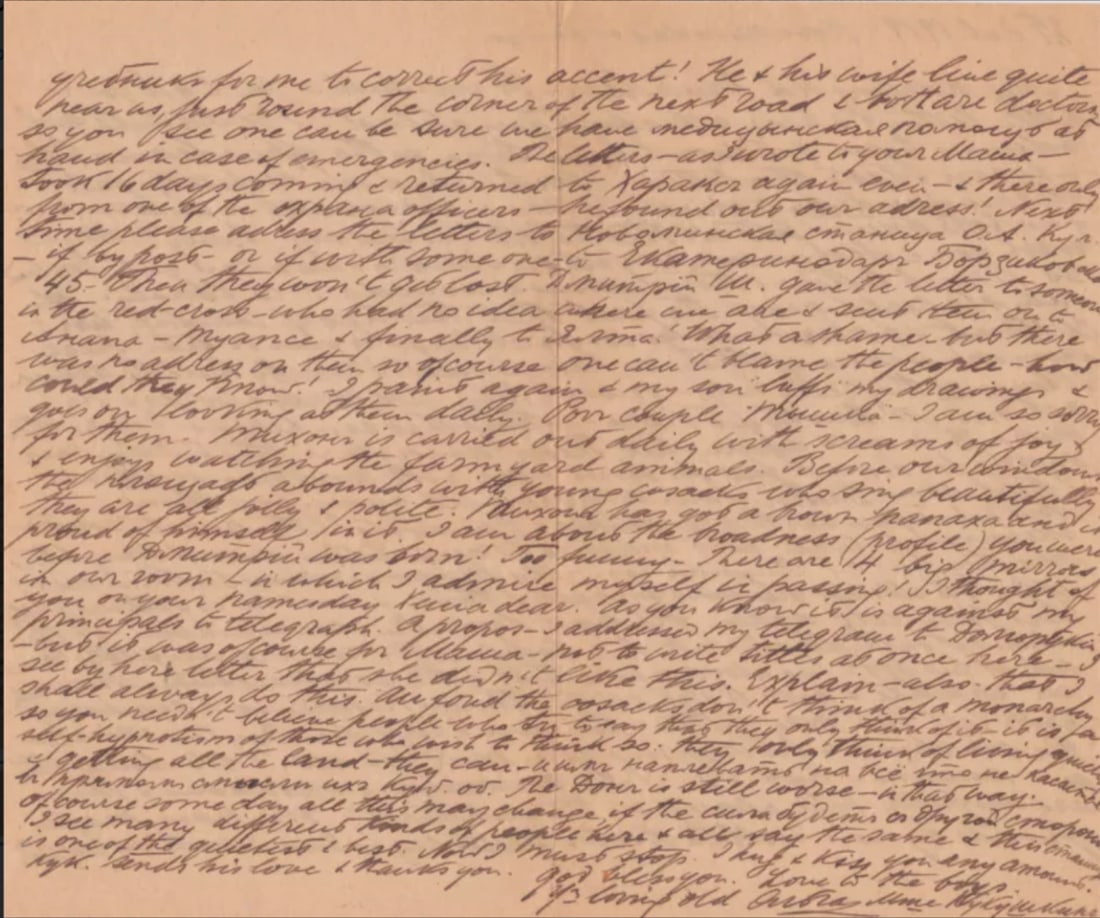 учебникъ for me to correct his accent! He & his wife live quite
near us, just round the corner of the next road & both are doctors
so you see one can be sure we have медицынская помощь at
hand in case of emergencies. The letters – as I wrote to your Mama –
took 16 days coming & returned to Хараксъ again even – & there only
from one of the охрана officers – he found out our adress! Next
time please adress the letters to Новоминская станица
– if by post – or if with some one – to Екатеринодаръ
45. Then they won't get lost. Дмитрій Ш. gave the letter to someone
in the red-cross – who had no idea where we are & sent them on to
Анапа – & finally to What a shame – but there
was no adress on them so of course one can't blame the people – how
could they know! I paint again & my son my drawings &
goes on looking at them daily. Poor couple – I am so sorry
for them. Тихонъ is carried out daily with screams of joy &
& enjoys watching the farmyard animals. Before our windows
the abounds with young cosacks who sing beautifully
they are all jolly & polite. Тихонъ has got a brown папаха and is
proud of himself in it. I am about the broadness (profile) you were
before Дмитрій was born! Too funny – There are 4 big mirrors
in our room – in which I admire myself in passing! I thought of
you on your namesday Xenia dear. As you know it is against my
principals to telegraph. Apropos – I addressed my telegram to
– but it was of course for Mama – not to write titles at once here – I
see by here letter that she didn't like this. Explain – also – that I
shall always do this. Au fond the cosacks don't think of a monarchy
so you needn't believe people who try to say that they only think of it – it is
self-hypnotism of those who wish to think so. They only think of living quietly
& getting all the land – they can – имъ наплевать на всё что не касается
въ прямомъ смыслѣ ихъ The Donn is still worse – in that way.
Of course some day all this may change if the сила будетъ съ другой стороны
I see many different kinds of people here & all say the same & this станица
is one of the quietest & best. Now I must stop. I hug & kiss you any amount.
Кук. sends his love & thanks you. God bless you. Love to the boys
Yr loving old Mme Куликовская